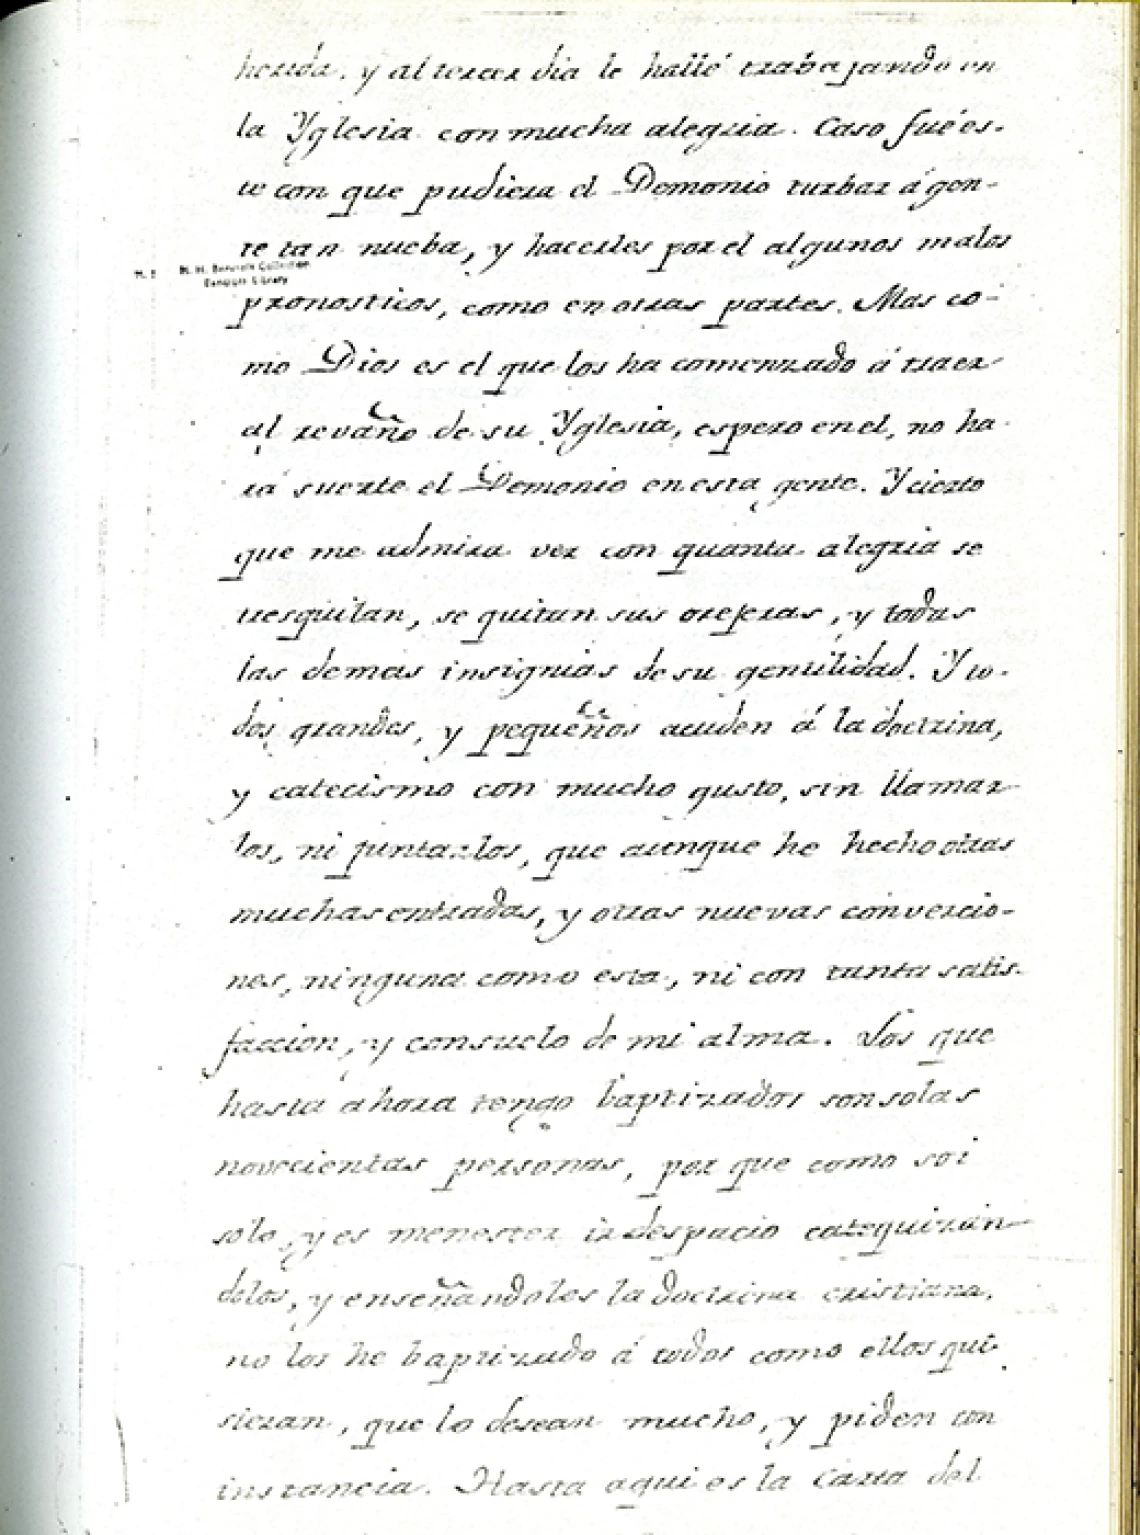 herida, y al tercer dia le hallé trabajando en
la Yglesia con mucha alegria. Caso fué es-
te con que pudiera el Demonio turbar á gen-
te tan nueba, y hacerles por el algunos malos
H. H. Bancroft Collection
Bancroft Library
pronosticos, como en otras partes. Mas co-
mo Dios es el que los ha comenzado á traer
al revaño de su Yglesia, espero en el, no ha-
rá suerte el Demonio en esta gente. Y cierto
que me admira ver con quanta alegria se
tresquilan, se quitan sus orejeras, y todas
las demas insignias de su gentilidad. Y to-
dos grandes, y pequeños acuden á la doctrina,
y catecismo con mucho gusto, sin llamar-
los, ni juntarlos, que aunque he hecho otras
muchas entradas, y otras nuevas convercio-
nes, ninguna como esta, ni con tanta satis-
faccion, y consuelo de mi alma. Los que
hasta ahora tengo baptizados son solas
novecientas personas, por que como soi
solo, y es menester ir despacio catequizan-
dolos, y enseñandoles la doctrina cristiana,
no los he baptizado á todos como ellos qui-
sieran, que lo desean mucho, y piden con
instancia. Hasta aqui es la carta del